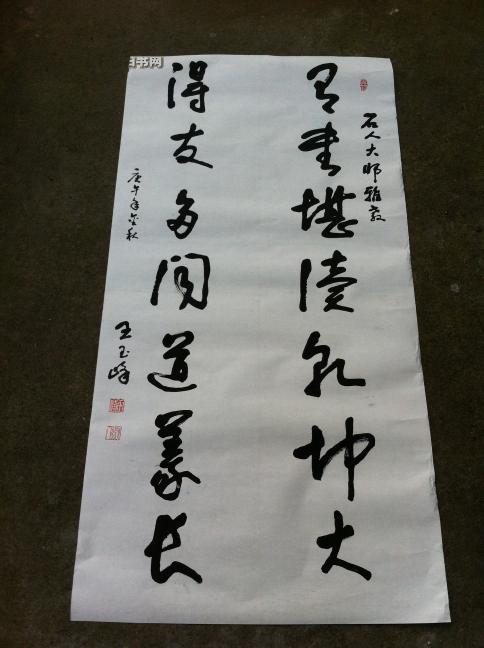 石人大師雅教
有書堪讀乾坤大
得友多聞道義長
庚午年金秋
王玉峰
旧书网